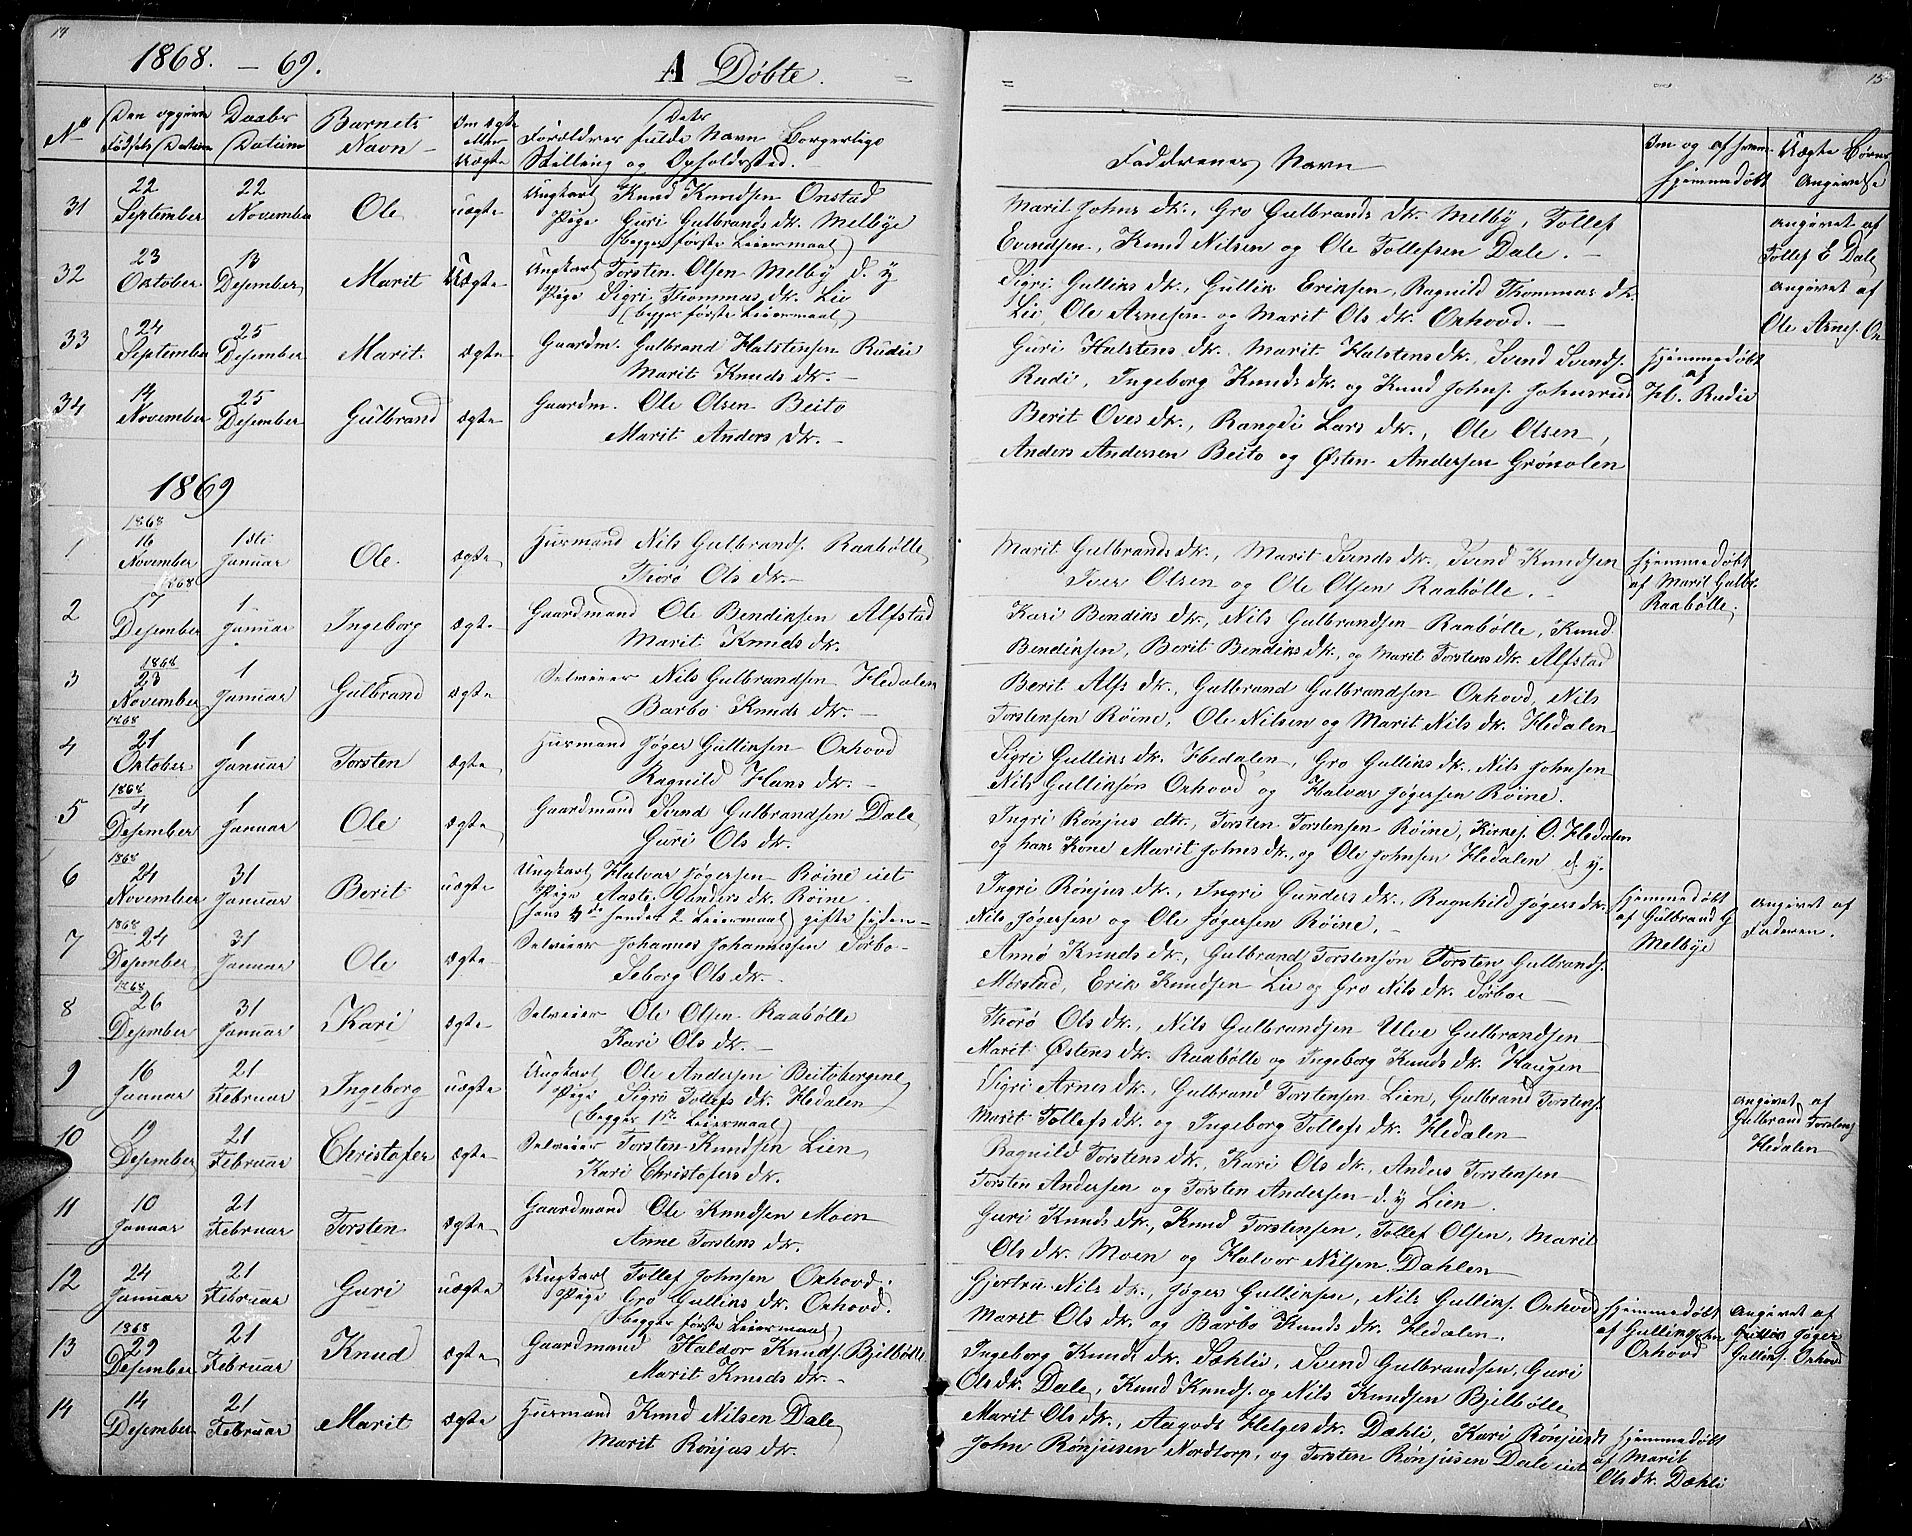 14
1868. — 69.
A Døbte.
15
No
Den opgivne Fødsels Datum
Daabs Datum
Barnets Navn
Om ægte eller Uægte
Dets Forældres fulde Navn Borgerlige Stilling og Opholdssted.
Faddrenes Navn
Om og af hvem hjemmedøbt
Uægte Børns Angivelse
31
22 September
22 November
Ole
uægte
Ungkarl Knud Knudsen Onstad
Pige Guri Gulbrands dk. Melbye
(begges første Leiermaal)
Marit Johns dk., Gro Gulbrands dk. Melby, Tollef
Evindsen, Knud Nilsen og Ole Tollefsen Dale.
angivet af Tollef E Dale
32
23 Oktober
13 Desember
Marit
Uægte
Ungkarl Torsten Olsen Melby d. y
Pige Sigri Thommas dk. Lie
(begges første Leiermaal)
Sigri Gullins dk., Gullik Eriksen, Ragnild Thommas dk.
Lie, Ole Arnesen og Marit Ols dk. Onhovd.
angivet af Ole Arnes.
33
24 September
25 Desember
Marit.
ægte
Gaardm. Gulbrand Halstensen Rudie
Marit Knuds dk.
Guri Halstens dk. Marit Halstens dk., Svend Svends.
Rudi, Ingeborg Knuds dk. og Knud Johns. Johnsrud
hjemmedøbt af H. Rudie
34
14 November
25 Desember
Gulbrand
ægte
Gaardm. Ole Olsen Beito
Marit Anders dk.
Berit Oves dk., Rangdi Lars dk., Ole Olsen,
Anders Andersen Beito og Østen Andersen Grønolen
1869
1
1868 16 November
1ste Januar
Ole
ægte
Husmand Nils Gulbrands. Raabølle
Thorø Ols dk.
Marit Gulbrands dk., Marit Svends dk., Svend Knudsen
Iver Olsen og Ole Olsen Raabølle.
hjemmedøbt af Marit Gulb. Raabølle.
2
1868 17 Desember
1 Januar
Ingeborg
ægte
Gaardmand Ole Bendiksen Alfstad
Marit Knuds dk.
Kari Bendiks dk., Nils Gulbrandsen Raabølle, Knud
Bendiksen, Berit Bendiks dk., og Marit Torstens dk. Alfstad
3
1868 23 November
1 Januar
Gulbrand
ægte
Selveier Nils Gulbrandsen Hedalen
Barbo Knuds dk.
Berit Alfs dk., Gulbrand Gulbrandsen Onhovd, Nils
Torstensen Røine, Ole Nilsen og Marit Nils dk. Hedalen
4
1868 21 Oktober
1 Januar
Torsten
ægte
Husmand Jøger Gullinsen Onhovd
Ragnild Hans dk.
Sigri Gullins dk. Hedalen, Gro Gullins dk. Nils Johnsen
Nils Gullinsøn Onhovd og Halvar Jøgersen Røine.
5
1868 4 Desember
1 Januar
Ole
ægte
Gaardmand Svend Gulbrandsen Dale
Guri Ols dk.
Ingri Rønjus dtr., Torsten Torstensen Røine, Kirkes. O. Hedalen
og hans Kone Marit Johns dk., og Ole Johnsen Hedalen d. y.
6
1868 24 November
31 Januar
Berit
uægte
Ungkarl Halvar Jøgersen Røine eiet
Pige Aaste Gunders dk. Røine
(hans 4de hendes 2 Leiermaal) gifte siden
Ingri Rønjus dk., Ingri Gunders dk., Ragnhild Jøgers dk.
Nils Jøgersen og Ole Jøgersen Røine.
hjemmedøbt af Gulbrand G Melbye
angivet af Faderen.
7
1868 24 Desember
31 Januar
Ole
ægte
Selveier Johannes Johannessen Sørbo
Seborg Ols dk.
Annø Knuds dk., Gulbrand Torstensøn Torsten Gulbrands.
Mørstad, Erik Knudsen Lie og Gro Nils dk. Sørboe
8
1868 26 Desember
31 Januar
Kari
ægte
Selveier Ole Olsen Raabølle
Kari Ols dk.
Thorø Ols dk., Nils Gulbrandsen Ulve Gulbrandsen
Marit Østens dk. Raabølle og Ingeborg Knuds dk. Haugen
9
16 Januar
21 Februar
Ingeborg
uægte
Ungkarl Ole Andersen Beitobergene
Pige Sigrø Tollefs dk. Hedalen
(begges 1ste Leiermaal)
Sigri Arnes dk., Gulbrand Torstensen Lien, Gulbrand Torstens.
Marit Tollefs dk. og Ingeborg Tollefs dk. Hedalen
Angivet af Gulbrand Torstens. Hedalen
10
19 Desember
21 Februar
Christofer
ægte
Selveier Torsten Knudsen Lien
Kari Christofers dk.
Ragnild Torstens dk., Kari Ols dk., Anders Torstensen
Torsten Andersen og Torsten Andersen d. y Lien.
11
10 Januar
21 Februar
Torsten
ægte
Gaardmand Ole Knudsen Moen
Anne Torstens dk.
Guri Knuds dk., Knud Torstensen, Tollef Olsen, Marit
Ols dk. Moen og Halvor Nilsen Dahlen
12
24 Januar
21 Februar
Guri
uægte
Ungkarl Tollef Johnsen Onhovd.
Pige Gro Gullins dk. Onhovd.
(begges første Leiermaal)
Gjertru Nils dk., Jøger Gullinsen, Nils Gullins. Onhovd
Marit Ols dk. og Barbo Knuds dk. Hedalen.
hjemmedøbt af Gulling Onhovd
Angivet af Gullin Jøger Gullins. Onhovd
13
1868 29 Desember
21 Februar
Knud
ægte
Gaardmand Haldor Knuds. Bjelbølle
Marit Knuds dk.
Ingeborg Knuds dk. Sæhlie, Svend Gulbrandsen, Guri
Ols dk. Dale, Knud Knuds. og Nils Knudsen Bjelbølle
14
14 Desember
21 Februar
Marit
ægte
Husmand Knud Nilsen Dale
Marit Rønjus dk.
Marit Ols dk., Aagodt Helges dk. Dæhli, Kari Rønjusdk
John Rønjusen Nordtorp, og Torsten Rønjusen Dale eiet
hjemmedøbt af Marit Ols dk. Dæhli